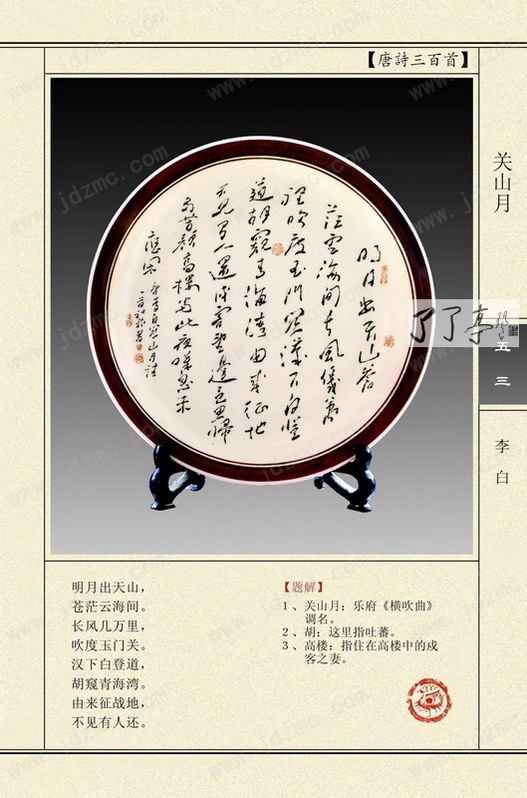 【唐詩三百首】
关山月
五三
李白
了了亭
明月出天山蒼
茫雲海間長風幾萬
裡吹度玉門關漢下白登
道胡窺青海湾由来征战地
不見有人還戍客望邊色思歸
多苦顏高樓当此夜嘆息未
應閑
明月出天山，
苍茫云海间。
长风几万里，
吹度玉门关。
汉下白登道，
胡窥青海湾。
由来征战地，
不见有人还。
【题解】
1、关山月：乐府《横吹曲》
调名。
2、胡：这里指吐蕃。
3、高楼：指住在高楼中的戍
客之妻。
www.jdzmc.com